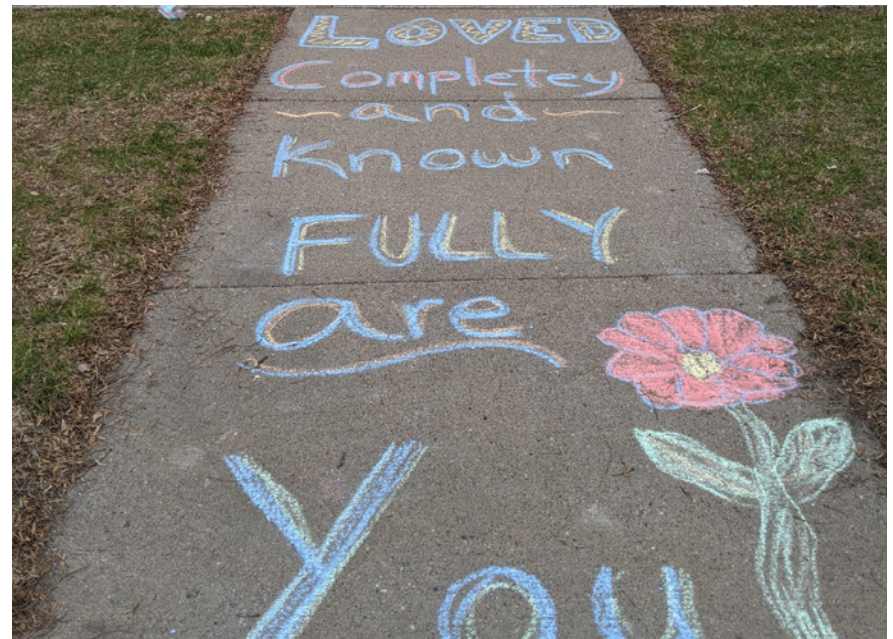 LOVED
Completey
and
Known
FULLY
are
You